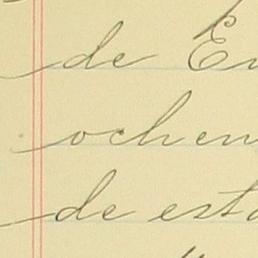 de En
ochen
de esta